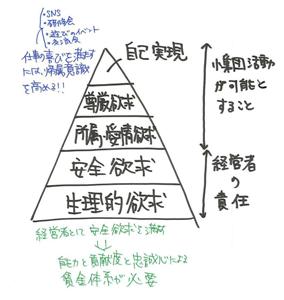 ・SNS
・研修会
・遊びのイベント
・交流会
仕事の喜びを満たす
には、帰属意識
を高める!!
自己実現
尊厳欲求
所属・愛情欲求
安全欲求
生理的欲求
小集団活動
が可能と
すること
経営者
の
責任
経営者として安全欲求まで満たす
能力と貢献度と忠誠心による
賃金体系が必要